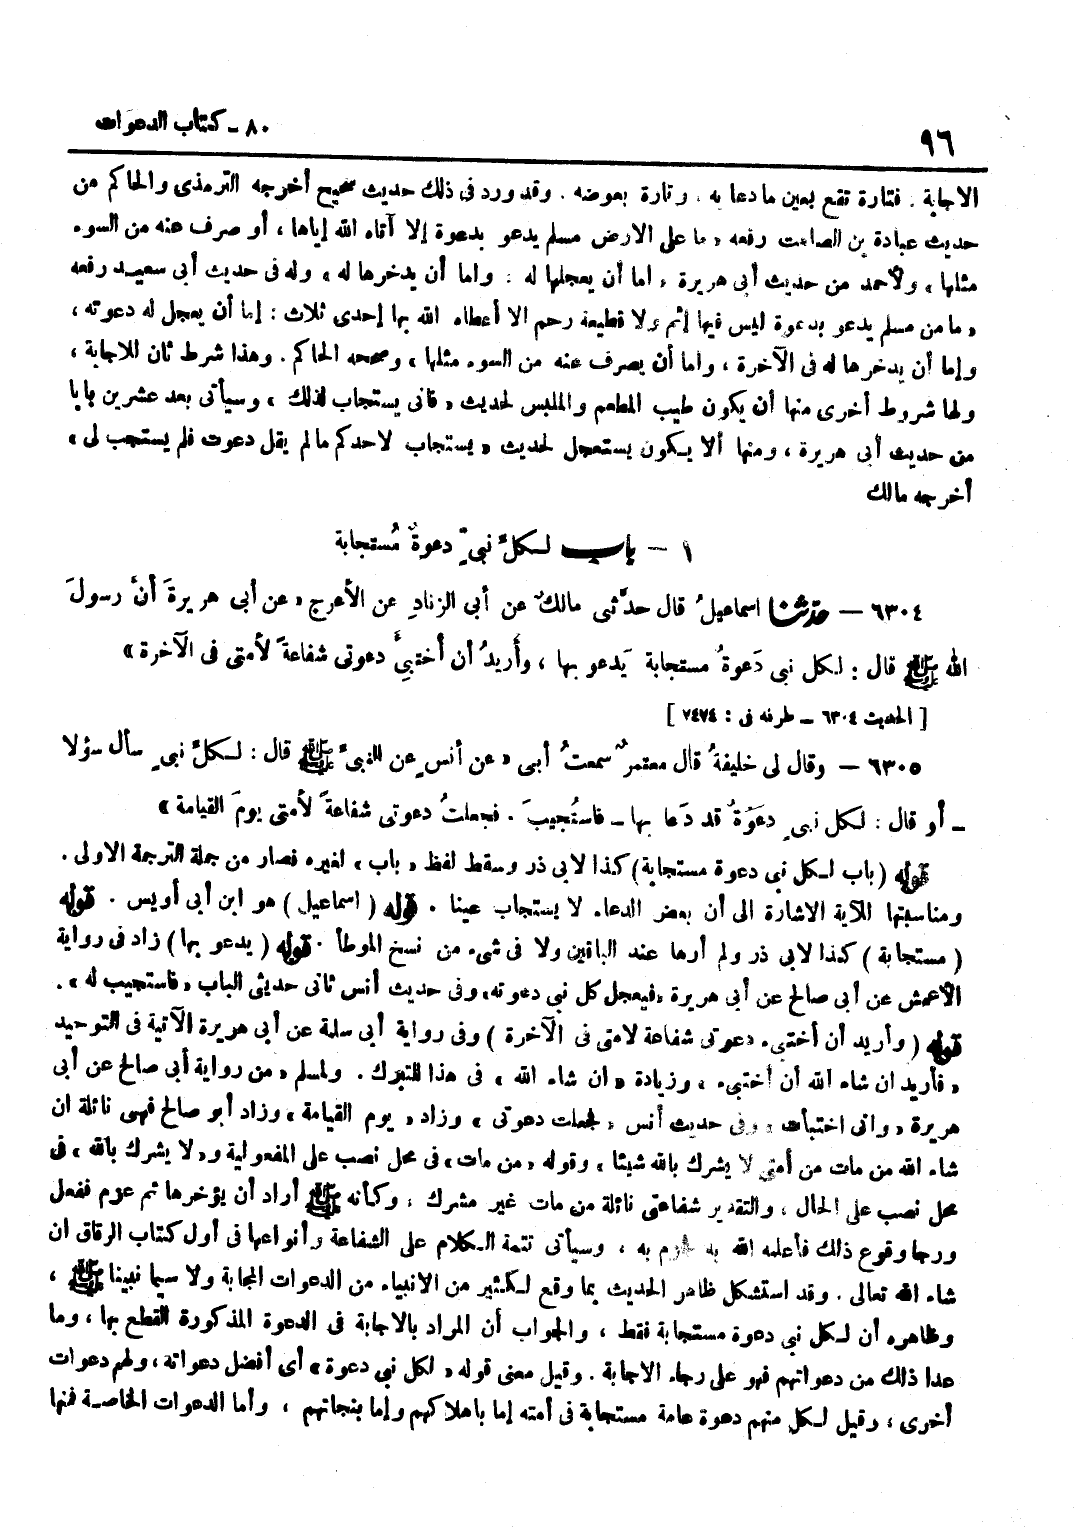 ٨٠ - كتاب الدعوات
٩٦
الاجابة . فتارة تقع بعين ما دعا به ، وتارة بعوضه . وقد ورد فى ذلك حديث صحيح أخرجه الترمذى والحاكم من
حديث عبادة بن الصامت رفعه « ما على الارض مسلم يدعو بدعوة إلا آتاه الله إياها ، أو صرف عنه من السوء
مثلها ، ولأحمد من حديث أبى هريرة « اما أن يعجلها له ، واما أن يدخرها له » وله فى حديث أبى سعيد رفعه
« ما من مسلم يدعو بدعوة ليس فيها إثم ولا قطيعة رحم الا أعطاه الله بها إحدى ثلاث : إما أن يعجل له دعوته ،
وإما أن يدخرها له فى الآخرة ، واما أن يصرف عنه من السوء مثلها ، وصححه الحاكم . وهذا شرط ثان للاجابة ،
ولها شروط أخرى منها أن يكون طيب المطعم والملبس لحديث « فانى يستجاب لذلك » وسيأتى بعد عشرين بابا
من حديث أبى هريرة ، ومنها ألا يكون يستعجل لحديث « يستجاب لاحدكم ما لم يقل دعوت فلم يستجب لى »
أخرجه مالك
١ - باب لكلِّ نبىٍّ دعوةٌ مُستجابة
٦٣٠٤ - حدثنا اسماعيلُ قال حدَّثنى مالكٌ عن أبى الزنادِ عن الأعرج « عن أبى هريرةَ أنَّ رسولَ
الله ﷺ قال : لكل نبى دَعوةٌ مستجابة يَدعو بها ، وأُريدُ أن أختبئَ دعوتى شفاعةً لأمتى فى الآخرة »
[ الحديث ٦٣٠٤ - طرفه فى : ٧٤٧٤ ]
٦٣٠٥ - وقال لى خليفةُ قال معتمرٌ سمعتُ أبى « عن أنسٍ عن النبىِّ ﷺ قال : لكلِّ نبىٍ سأل سؤلا
- أو قال : لكل نبىٍ دعوَةٌ قد دَعا بها - فاستُجيبَ . فجعلتُ دعوتى شفاعةً لأمتى يومَ القيامة »
قوله ( باب لكل نبى دعوة مستجابة ) كذا لابى ذر وسقط لفظ « باب » لغيره فصار من جملة الترجمة الاولى .
ومناسبتها للآية الاشارة الى أن بعض الدعاء لا يستجاب عينا . قوله ( اسماعيل ) هو ابن أبى أويس . قوله
( مستجابة ) كذا لابى ذر ولم أرها عند الباقين ولا فى شىء من نسخ الموطأ . قوله ( يدعو بها ) زاد فى رواية
الأعمش عن أبى صالح عن أبى هريرة « فيعجل كل نبى دعوته » وفى حديث أنس ثانى حديثى الباب « فاستجيب له » .
قوله ( وأريد أن أختبىء دعوتى شفاعة لامتى فى الآخرة ) وفى رواية أبى سلمة عن أبى هريرة الآتية فى التوحيد
« فأريد ان شاء الله أن أختبىء » وزيادة « ان شاء الله » فى هذا للتبرك . ولمسلم « من رواية أبى صالح عن أبى
هريرة « وانى اختبأت » وفى حديث أنس « فجعلت دعوتى » وزاد « يوم القيامة » وزاد أبو صالح فهى نائلة ان
شاء الله من مات من أمتى لا يشرك بالله شيئا ، وقوله « من مات » فى محل نصب على المفعولية و« لا يشرك بالله » فى
محل نصب على الحال ، والتقدير شفاعتى نائلة من مات غير مشرك ، وكأنه ﷺ أراد أن يؤخرها ثم عزم ففعل
ورجا وقوع ذلك فأعلمه الله به فجزم به ، وسيأتى تتمة الكلام على الشفاعة وأنواعها فى أول كتاب الرقاق ان
شاء الله تعالى . وقد استشكل ظاهر الحديث بما وقع لكثير من الانبياء من الدعوات المجابة ولا سيما نبينا ﷺ ،
وظاهره أن لكل نبى دعوة مستجابة فقط ، والجواب أن المراد بالاجابة فى الدعوة المذكورة القطع بها ، وما
عدا ذلك من دعواتهم فهو على رجاء الاجابة . وقيل معنى قوله « لكل نبى دعوة » أى أفضل دعواته ، ولهم دعوات
أخرى ، وقيل لكل منهم دعوة عامة مستجابة فى أمته إما باهلاكهم وإما بنجاتهم ، وأما الدعوات الخاصة فمنها